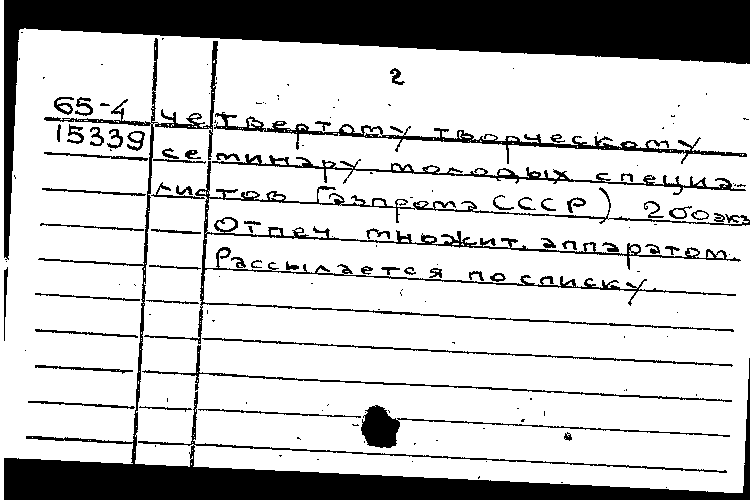 2
65-4 четвертому творческому
15339 семинару молодых специа-
листов Газпрома СССР) 200экз
Отпеч множит. аппаратом.
Рассылается по списку.